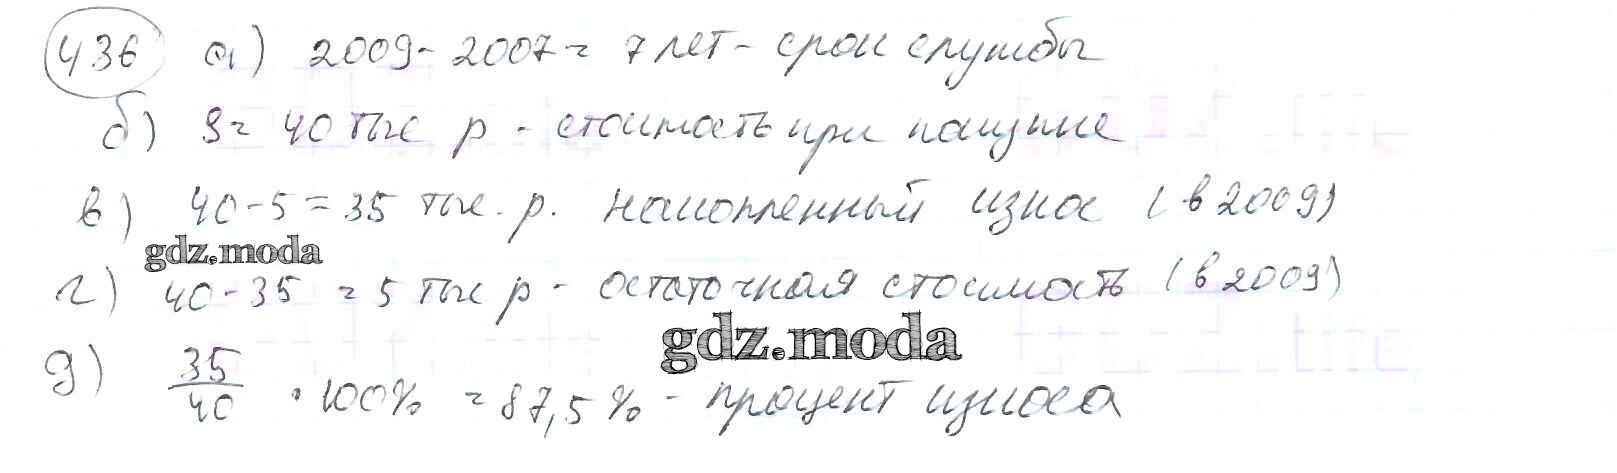 436 а) 2009 - 2007 = 7 лет - срок службы
б) S = 40 тыс р - стоимость при покупке
в) 40 - 5 = 35 тыс. р. накопленный износ (в 2009)
gdz.moda
г) 40 - 35 = 5 тыс р - остаточная стоимость (в 2009)
gdz.moda
д) 35/40 · 100% = 87,5 % - процент износа